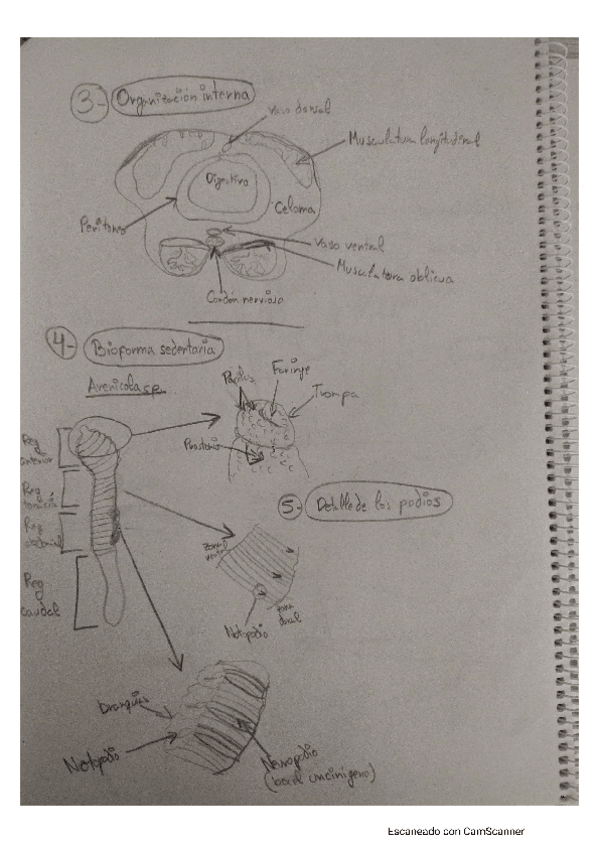 3- Organización interna
Vaso dorsal
Musculatura longitudinal
Digestivo
Celoma
Peritoneo
Vaso ventral
Musculatura oblicua
Cordón nervioso
4- Bioforma sedentaria
Arenicola sp.
Papilas
Faringe
Trompa
Prostomio
Reg
anterior
Reg
torácica
Reg
abdominal
Reg
caudal
5- Detalle de los podios
Zona
ventral
Zona
dorsal
Notopodio
Branquias
Notopodio
Neuropodio
(borde uncinígero)
Escaneado con CamScanner